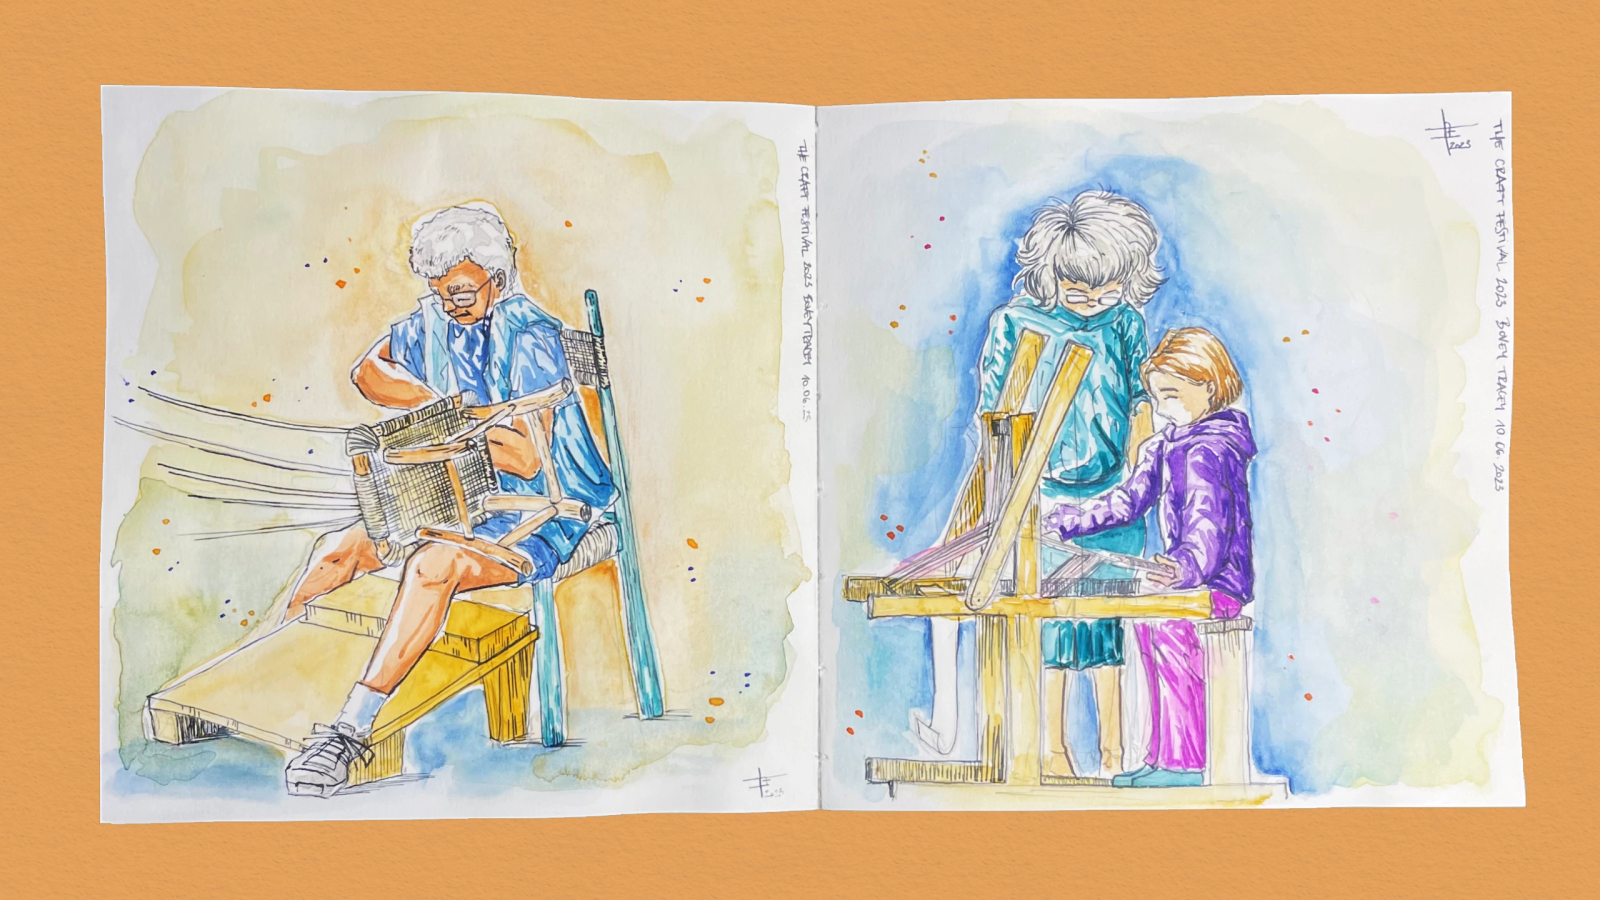 THE CRAFT FESTIVAL 2023 BOVEY TRACEY 10.06.
2023
THE CRAFT FESTIVAL 2023 BOVEY TRACEY 10.06.2023